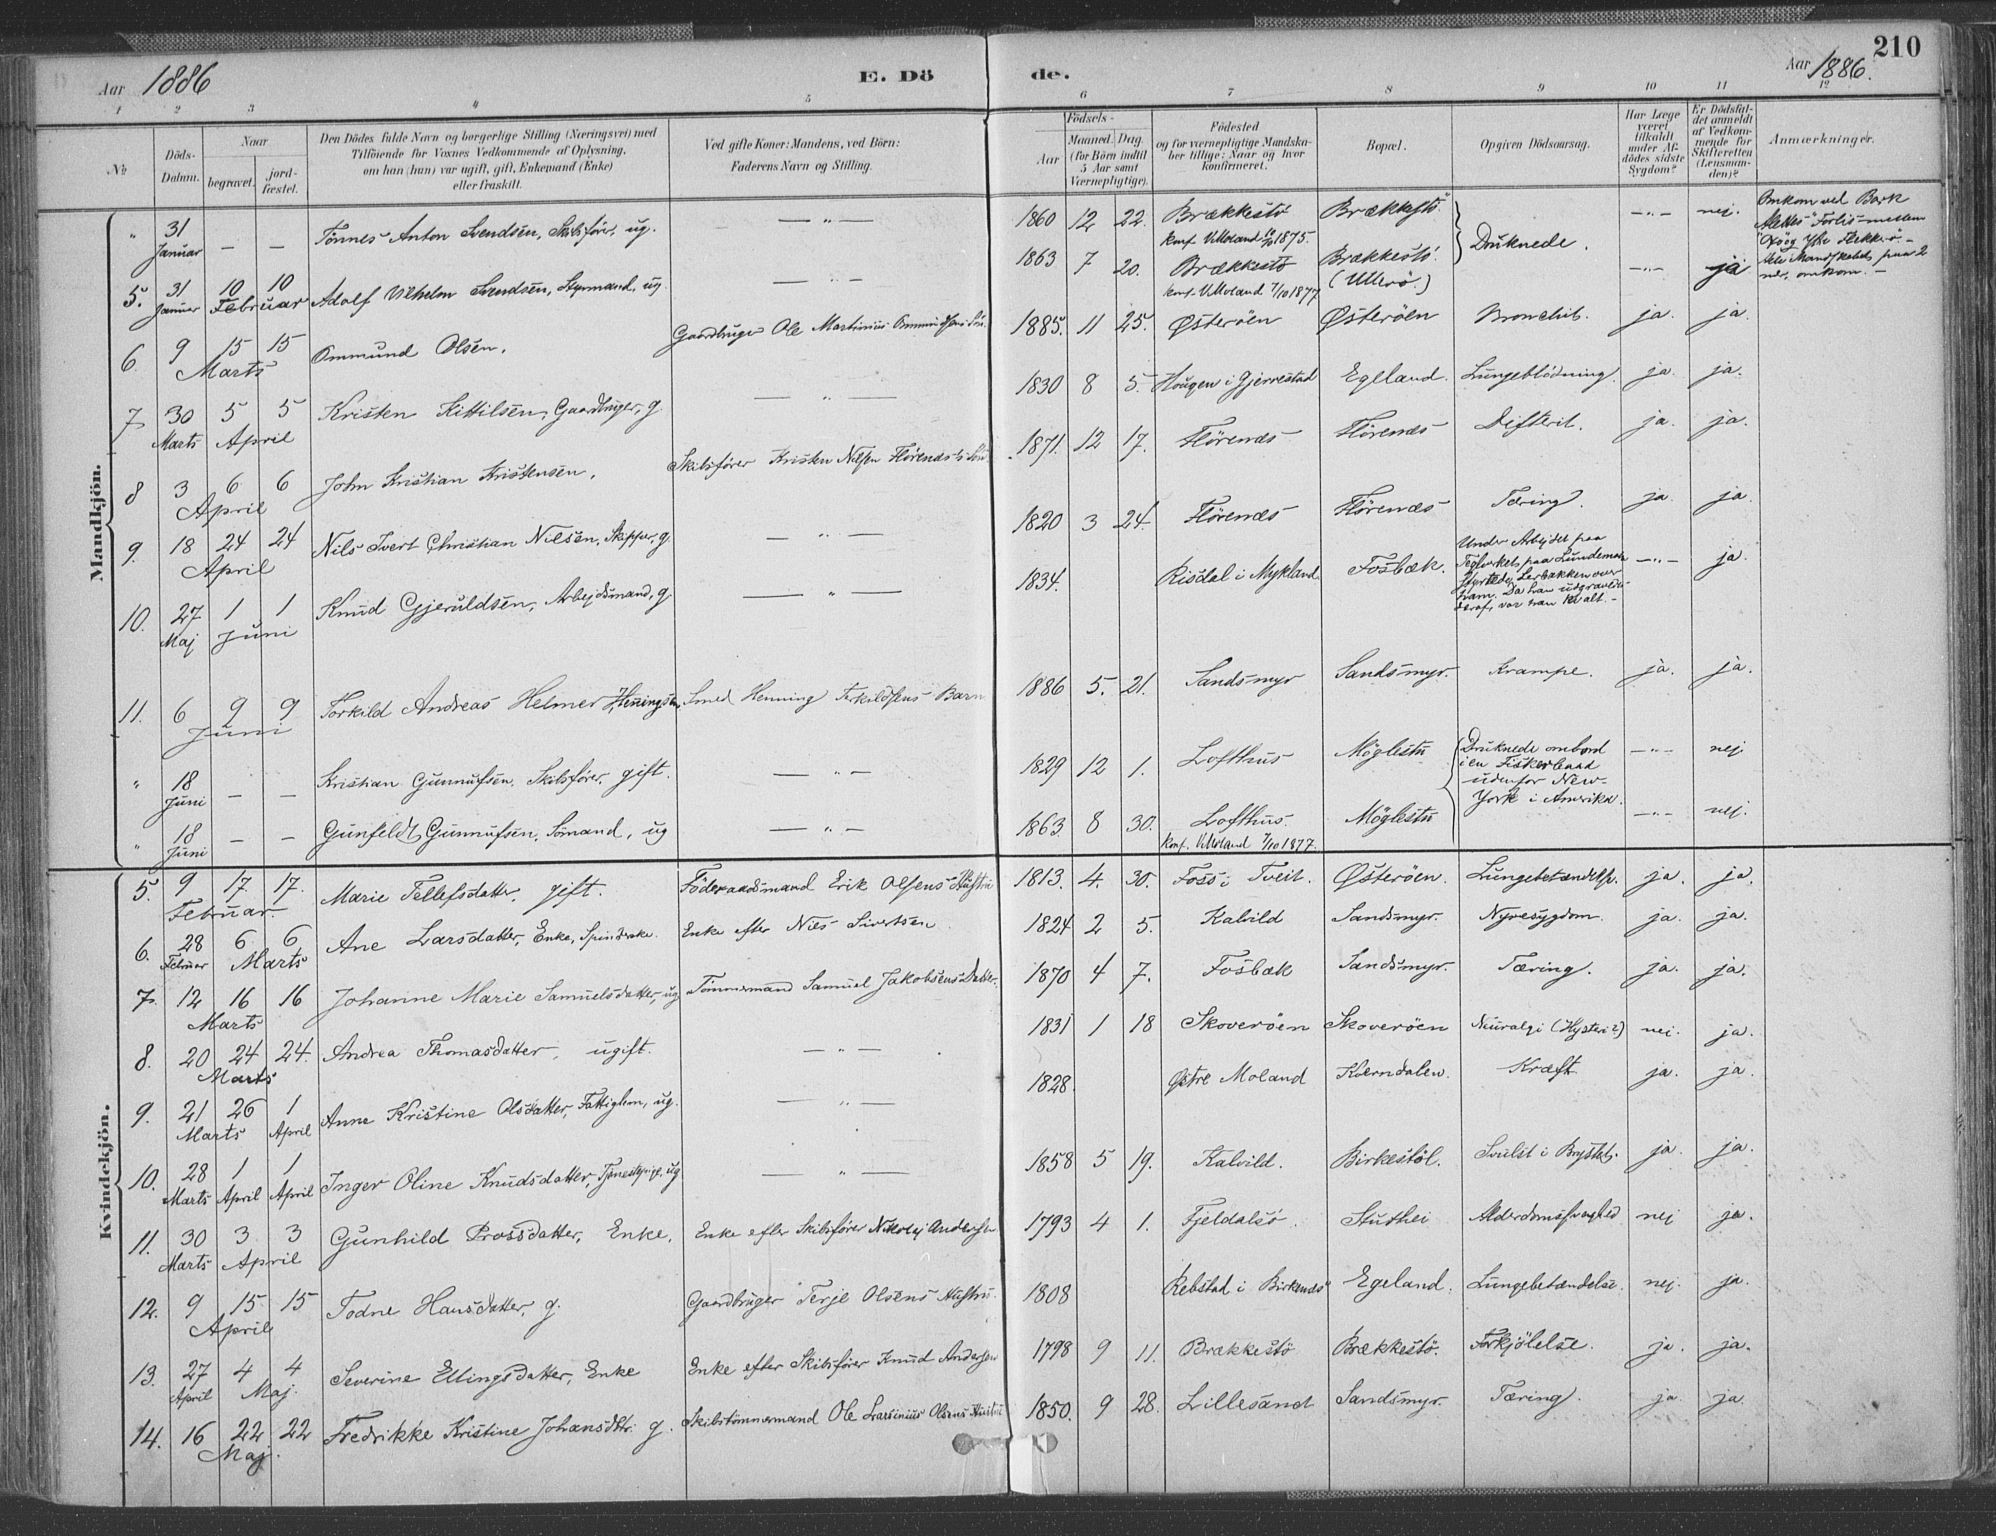 Aar 1886
E. Dö
de.
Aar 1886.
210
1 2 3 4 5 6 7 8 9 10 11 12
№
Döds-Datum.
Naar
begravet.
jord-fæstet.
Den Dödes fulde Navn og borgerlige Stilling (Næringsvei) med
Tilföiende for Voxnes Vedkommende af Oplysning,
om han (hun) var ugift, gift, Enkemand (Enke)
eller fraskilt.
Ved gifte Koner: Mandens, ved Börn:
Faderens Navn og Stilling.
Födsels-
Aar
Maaned. Dag.
(for Börn indtil
5 Aar samt
Værnepligtige).
Födested
og for værnepligtige Mandska-
ber tillige: Naar og hvor
konfirmeret.
Bopæl.
Opgiven Dödsaarsag.
Har Læge
været
tilkaldt
under Af-
dödes sidste
Sygdom?
Er Dödsfal-
det anmeldt
af Vedkom-
mende for
Skifteretten
(Lensman-
den)?
Anmærkninger.
Mandkjön.
" 31 Januar — — Tönnes Anton Svendsen, Skibsförer, ug. — " — 1860 12 22. Brækkestö Brækkestö. Druknede. — " — nej. Omkom ved Bark
konf. V. Moland 1875.
5. 31 Januar 10 10 Februar Adolf Vilhelm Svendsen, Styrmand, ug. — " — 1863 7 20. Brækkestö Brækkestö. (Ulerö.) — " — ja
konf. V. Moland 7/10 1877
6 9 15 15 Marts Ommund Olsen. Gaardbruger Ole Martinius Ommundsens Sön. 1885. 11 25. Østeröen Østeröen Bronchit. ja. ja.
7 30 Marts 5 5 April Kristen Kittilsen, Gaardbruger, g. — " — 1830 8 5. Hougen i Gjerrestad Egeland. Lungeblödning. ja. ja.
8 3 6 6 April John Kristian Kristensen. Skibsförer Kristen Nilsen Flörenæs's Sön 1871. 12 17. Flörenæs Flörenæs Difterit. ja. ja.
9. 18 24 24 April Nils Ivert Christian Nielsen, Skipper, g. — " — 1820 3 24. Flörenæs Flörenæs Tæring. ja. ja.
10. 27 Maj 1 1 Juni Knud Gjeruldsen, Arbejdsmand, g. — " — 1834. Risdal i Mykland. Fosbæk. Under Arbejdet paa
Teglverket paa Lundemoen
styrtede Lerbakken over
ham. Da han udgravedes
deraf, var han kvalt. — " — ja.
11. 6 9 9 Juni Torkild Andreas Helmer Henningsen, Smed Henning Terkildsens Barn 1886 5. 21. Sandsmyr Sandsmyr. Krampe. ja. ja.
" 18 Juni — — Kristian Gunnufsen, Skibsförer, gift. — " — 1829 12 1. Lofthus Möglestu Druknede ombord
i en Fiskerbaad
udenfor New-
York i Amerika. — " — nej
" 18 Juni — — Gunfeldt Gunnufsen, Sömand, ug — " — 1863 8 30. Lofthus. Möglestu — " — nej.
konf. V. Moland 7/10 1877.
Kvindekjön.
5. 9 17 17. Februar. Marie Tellefsdatter, gift. Föderaadsmand Erik Olsens Hustru 1813. 4. 30. Foss i Tveit. Østeröen. Lungebetændelse. ja. ja.
6. 28 Februar 6 6 Marts Ane Larsdatter, Enke, Spinderske. Enke efter Nils Sivertsen. 1824 2 5. Kalvild Sandsmyr. Nyresygdom. ja. ja.
7. 12 16 16 Marts Johanne Marie Samuelsdatter, ug. Tömmermand Samuel Jakobsens Datter. 1870 4 7. Fosbæk Sandsmyr. Tæring. ja. ja.
8. 20 24 24. Marts Andrea Thomasdatter, ugift. — " — 1831 1 18 Skoveröen Skoveröen Neuralgi (Hysteri?) nei. ja.
9. 21 26 Marts 1 April Anne Kristine Olsdatter, Fattiglem, ug. — " — 1828. Østre Moland Kverndalen. Kræft ja. ja.
10. 28 Marts 1 April 1 April Inger Oline Knudsdatter, Tjenestepige, ug — " — 1858 5 19. Kalvild. Birkestöl. Svulst i Brystet. ja. ja.
11. 30 Marts 3 3 April Gunhild Prossdatter, Enke. Enke efter Skibsförer Nikolaj Andersen 1793 4 1. Fjeldalsö. Stuthei Alderdomssvaghed nej ja.
12. 9 15 15 April Todne Hansdatter, g. Gaardbruger Terje Olsens Hustru. 1808 Rebstad i Birkenes Egeland. Lungebetændelse. nej. ja.
13. 27 April 4 4 Maj. Severine Ellingsdatter, Enke Enke efter Skibsförer Knud Andersen 1798 9 11. Brækkestö Brækkestö. Forkjölelse. ja. ja.
14. 16 22 22 Maj. Fredrikke Kristine Johansdtr. g. Skibstömmermand Ole Larsinius Olsens Hustru 1850. 9 28. Lillesand Sandsmyr. Tæring. ja ja